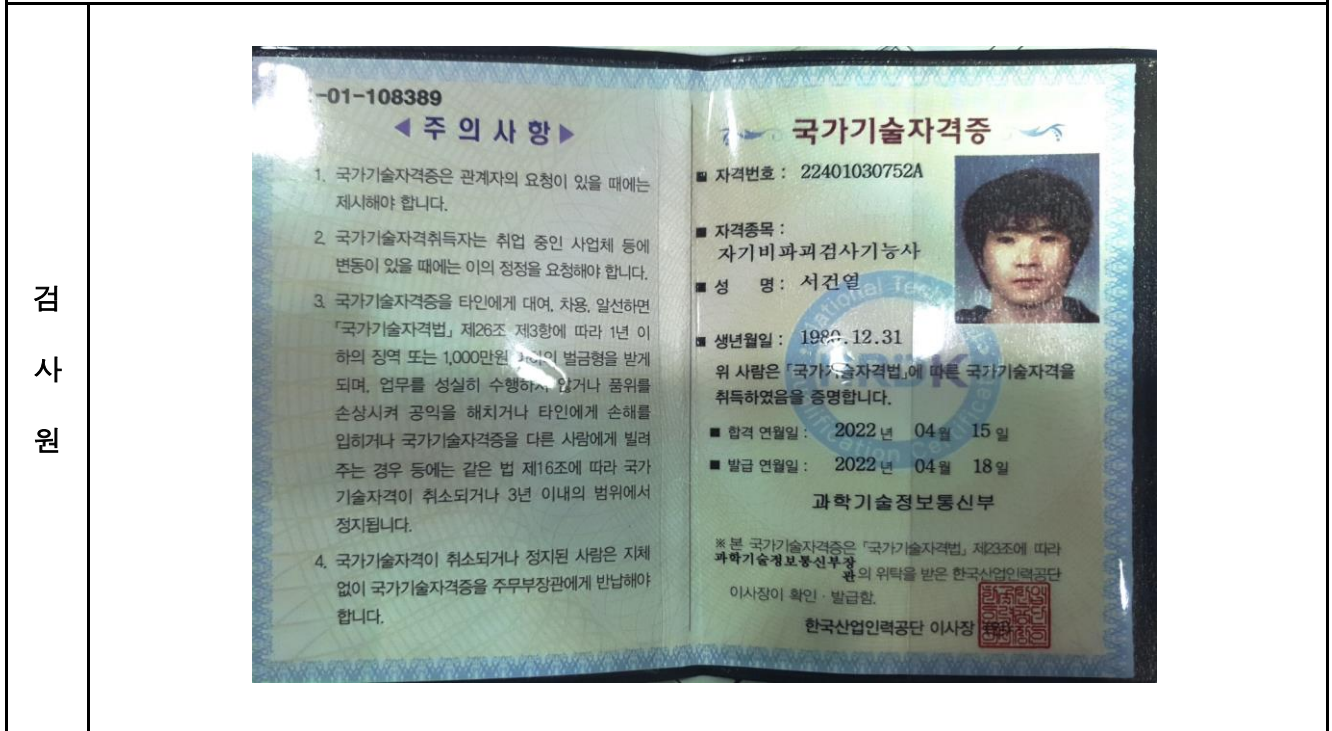 검
사
원
-01-108389
◀ 주 의 사 항 ▶
1. 국가기술자격증은 관계자의 요청이 있을 때에는
제시해야 합니다.
2. 국가기술자격취득자는 취업 중인 사업체 등에
변동이 있을 때에는 이의 정정을 요청해야 합니다.
3. 국가기술자격증을 타인에게 대여, 차용, 알선하면
「국가기술자격법」 제26조 제3항에 따라 1년 이
하의 징역 또는 1,000만원 벌금형을 받게
되며, 업무를 성실히 수행하지 않거나 품위를
손상시켜 공익을 해치거나 타인에게 손해를
입히거나 국가기술자격증을 다른 사람에게 빌려
주는 경우 등에는 같은 법 제16조에 따라 국가
기술자격이 취소되거나 3년 이내의 범위에서
정지됩니다.
4. 국가기술자격이 취소되거나 정지된 사람은 지체
없이 국가기술자격증을 주무부장관에게 반납해야
합니다.
국가기술자격증
■ 자격번호 : 22401030752A
■ 자격종목 :
자기비파괴검사기능사
■ 성 명 : 서건열
■ 생년월일 : 12.31
위 사람은 「국가기술자격법」에 따른 국가기술자격을
취득하였음을 증명합니다.
■ 합격 연월일 : 2022 년 04 월 15 일
■ 발급 연월일 : 2022 년 04 월 18 일
과학기술정보통신부
※ 본 국가기술자격증은 「국가기술자격법」 제23조에 따라
과학기술정보통신부장
관의 위탁을 받은 한국산업인력공단
이사장이 확인 · 발급함.
한국산업인력공단 이사장